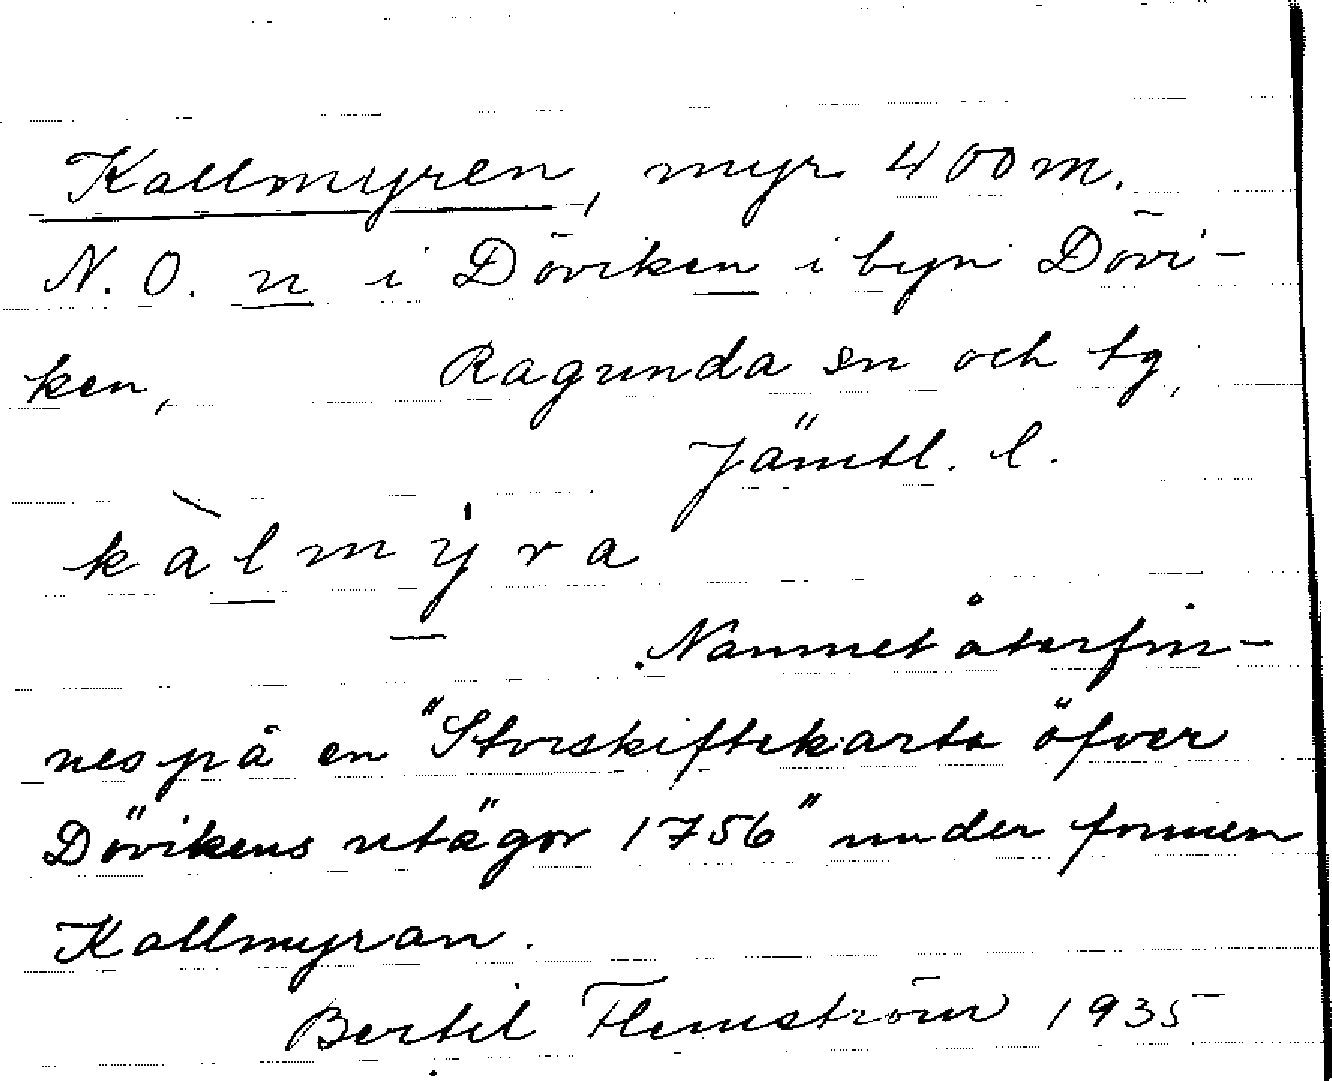 Kallmyren, myr 400 m.
N. O. n i Döviken i byn Dövi-
ken, Ragunda sn och tg,
Jämtl. l.
kàlmýra
Namnet återfin-
nes på en "Storskifteskarta öfver
Dövikens utägor 1756" under formen
Kallmyran.
Bertil Flemström 1935